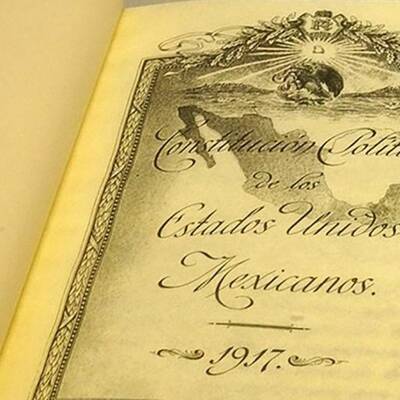 Constitución Polít
de los
Estados Unidos
Mexicanos.
1917.